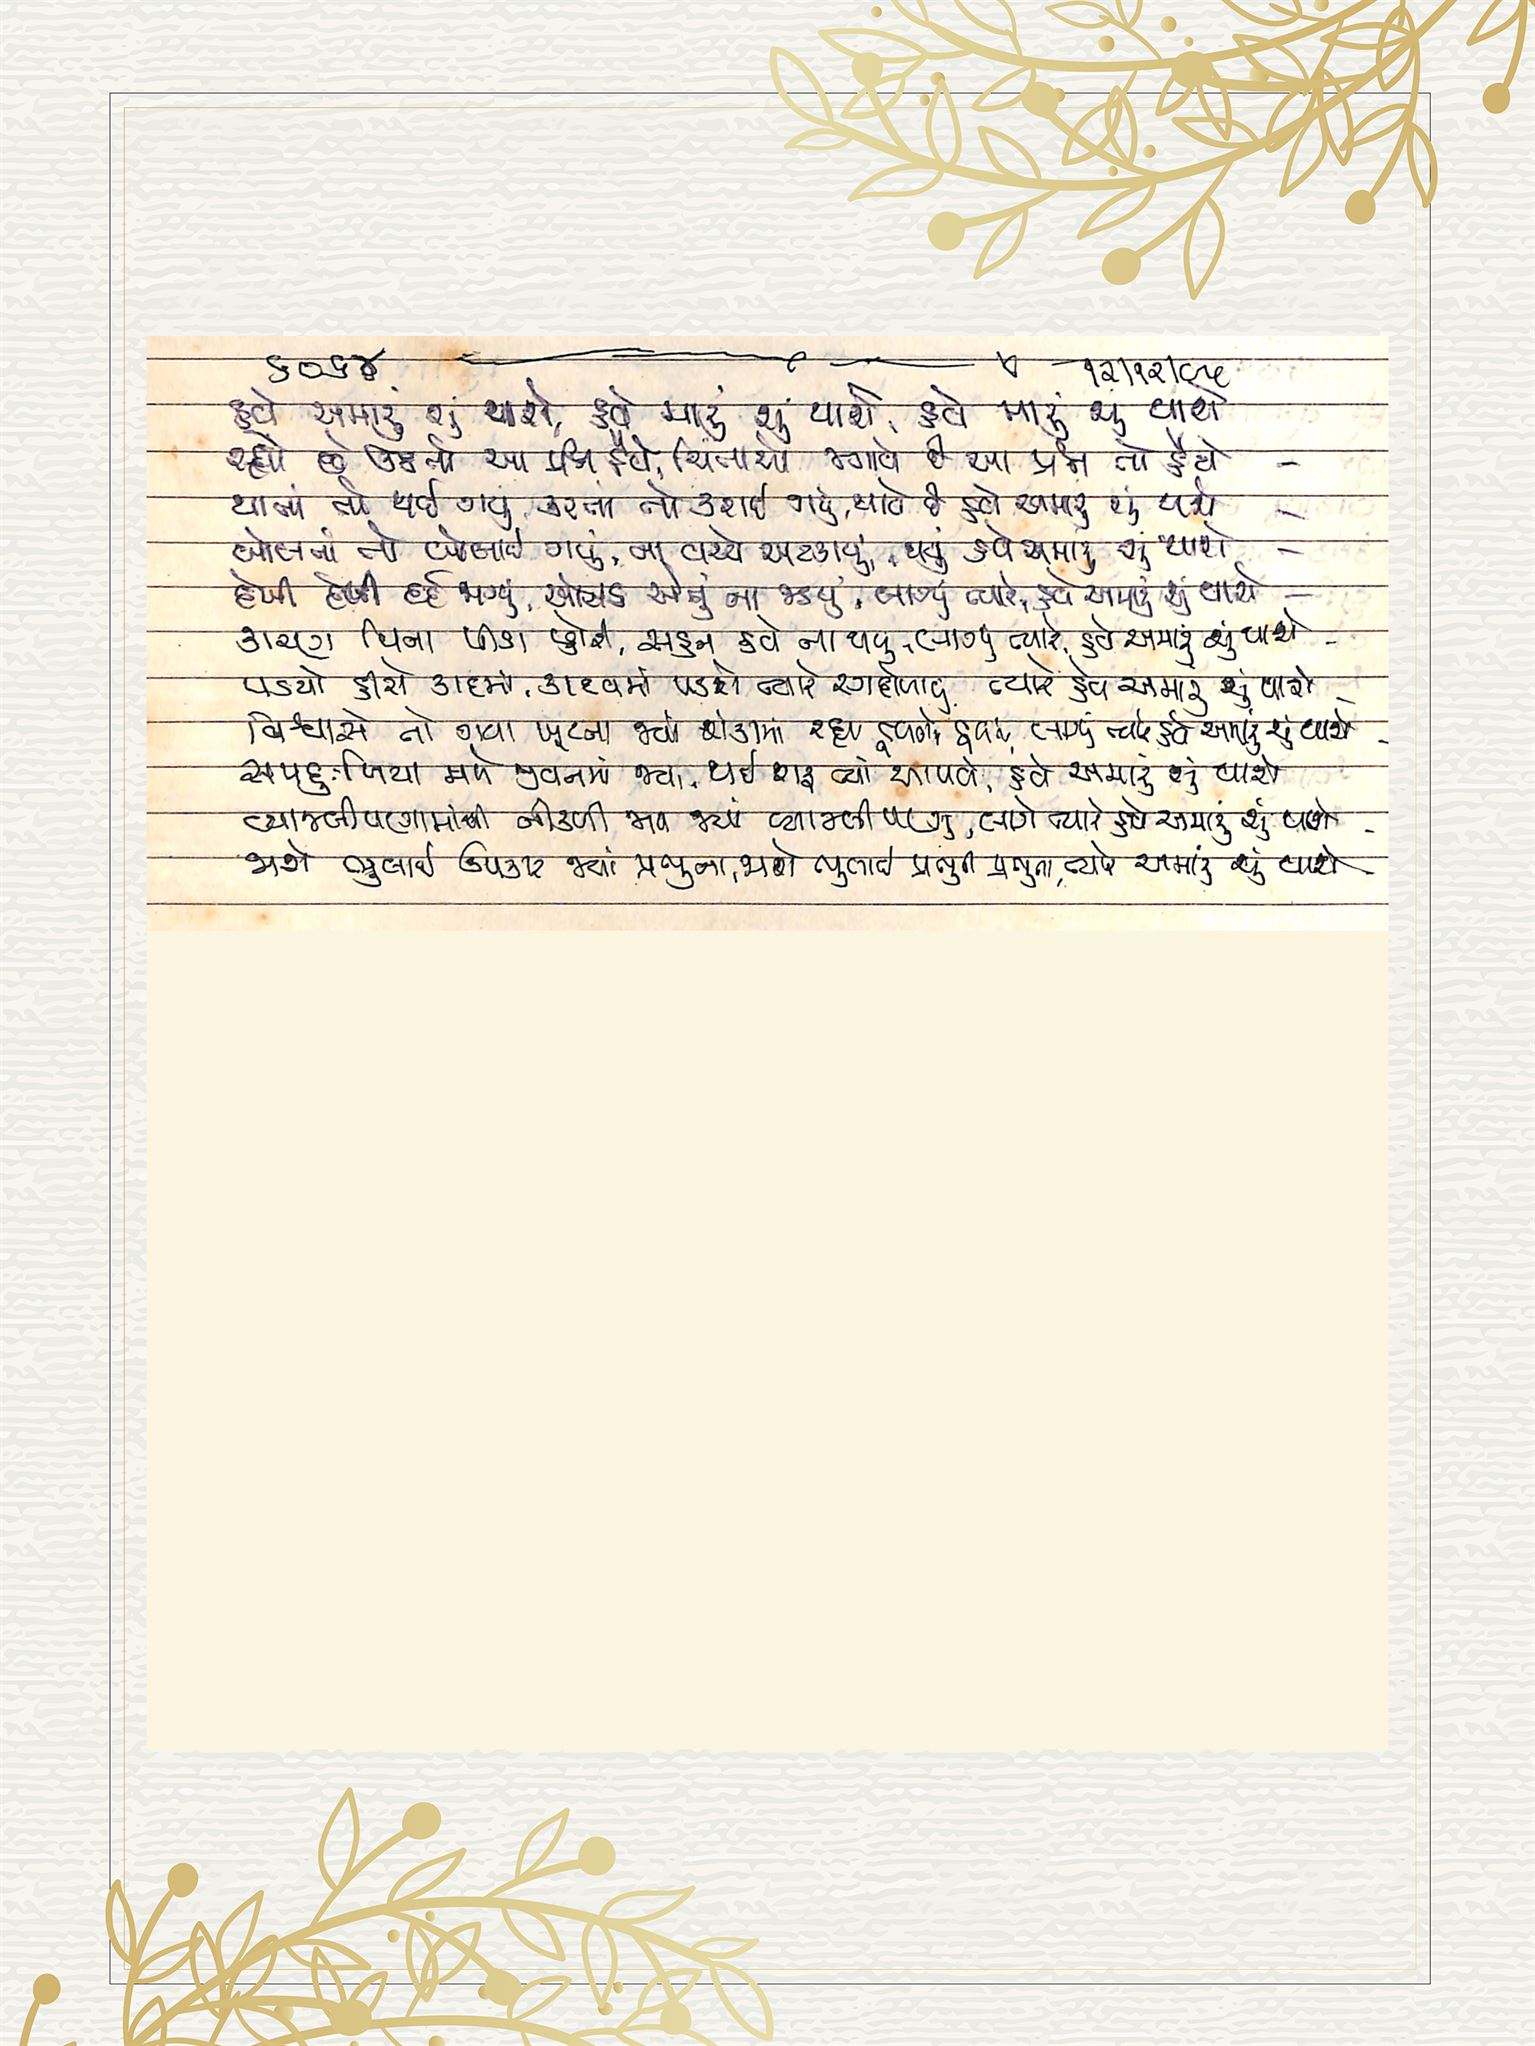 ૬૦૬૪ ૧૨/૧૨/૯૫
હવે અમારું શું થાશે, હવે મારું શું થાશે, હવે મારું શું થાશે
રહ્યો છે ઉઠતો આ પ્રશ્ન હૈયે, ચિંતાઓ જગાવે છે આ પ્રશ્ન તો હૈયે -
થાતાં તો થઈ ગયું, કરતાં તો કરાઈ ગયું, થાયે છે હવે અમારું શું થાશે -
બોલતાં તો બોલાઈ ગયું, ના વચ્ચે અટકાયું, થયું હવે અમારું શું થાશે -
દેખી દેખી દર્દ જાગ્યું, ઓસડ એનું ના જડયું, લાગ્યું ત્યારે, હવે અમારું શું થાશે -
કારણ વિના પીડા, સહન હવે ના થયું, લાગ્યું ત્યારે, હવે અમારું શું થાશે -
પડયો હીરો કાદવમાં, કાદવમાં પડશે ત્યારે રગદોળાવું, ત્યારે હવે અમારું શું થાશે -
વિશ્વાસે તો ગયા ખૂટતા જ્યાં શંકામાં રહ્યા ડૂબતો, લાગ્યું ત્યારે હવે અમારું શું થાશે -
સમદુઃખિયા મળે જીવનમાં જ્યાં, થઈ શરૂ ત્યાં, હવે અમારું શું થાશે
વ્યાજબીપણામાંથી નીકળી જાય જ્યાં વ્યાજબીપણું, લાગે ત્યારે હવે અમારું શું થાશે -
જાશે ભુલાઈ ઉપકાર જ્યાં પ્રભુના, જાશે ભુલાઈ પ્રભુની પ્રભુતા, ત્યારે અમારું શું થાશે -